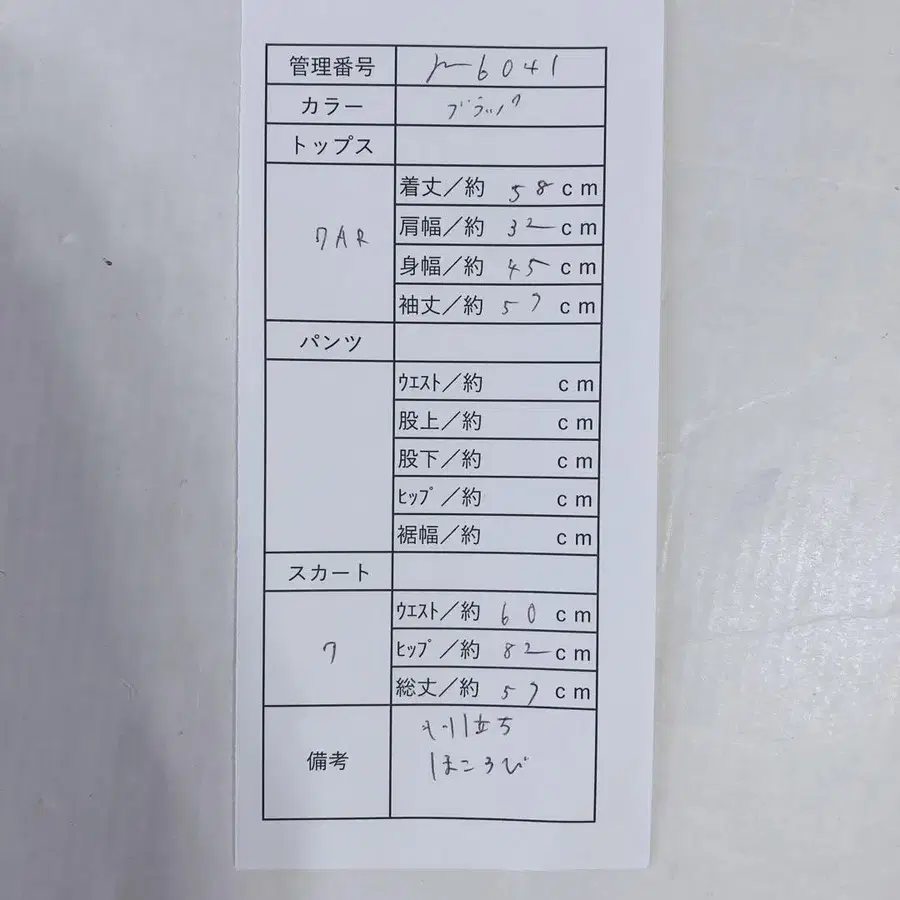 管理番号 6041
カラー ブラック
トップス
7AR
着丈／約 58 cm
肩幅／約 32 cm
身幅／約 45 cm
袖丈／約 57 cm
パンツ
ウエスト／約 cm
股上／約 cm
股下／約 cm
ヒップ／約 cm
裾幅／約 cm
スカート
7
ウエスト／約 60 cm
ヒップ／約 82 cm
総丈／約 57 cm
備考
毛羽立ち
ほころび